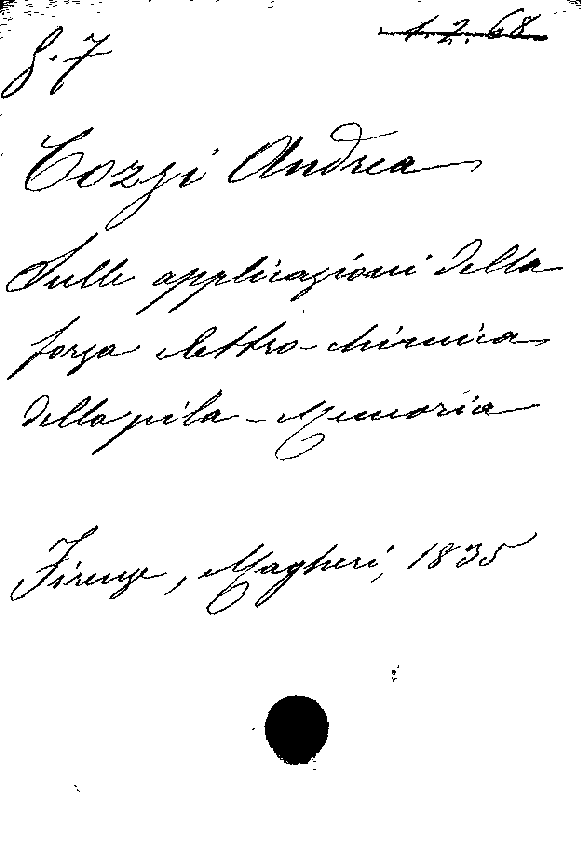 8.7
1.2.68
Cozzi Andrea
Sulle applicazioni della
forza elettro-chimica
della pila - Memoria
Firenze, Magheri, 1835